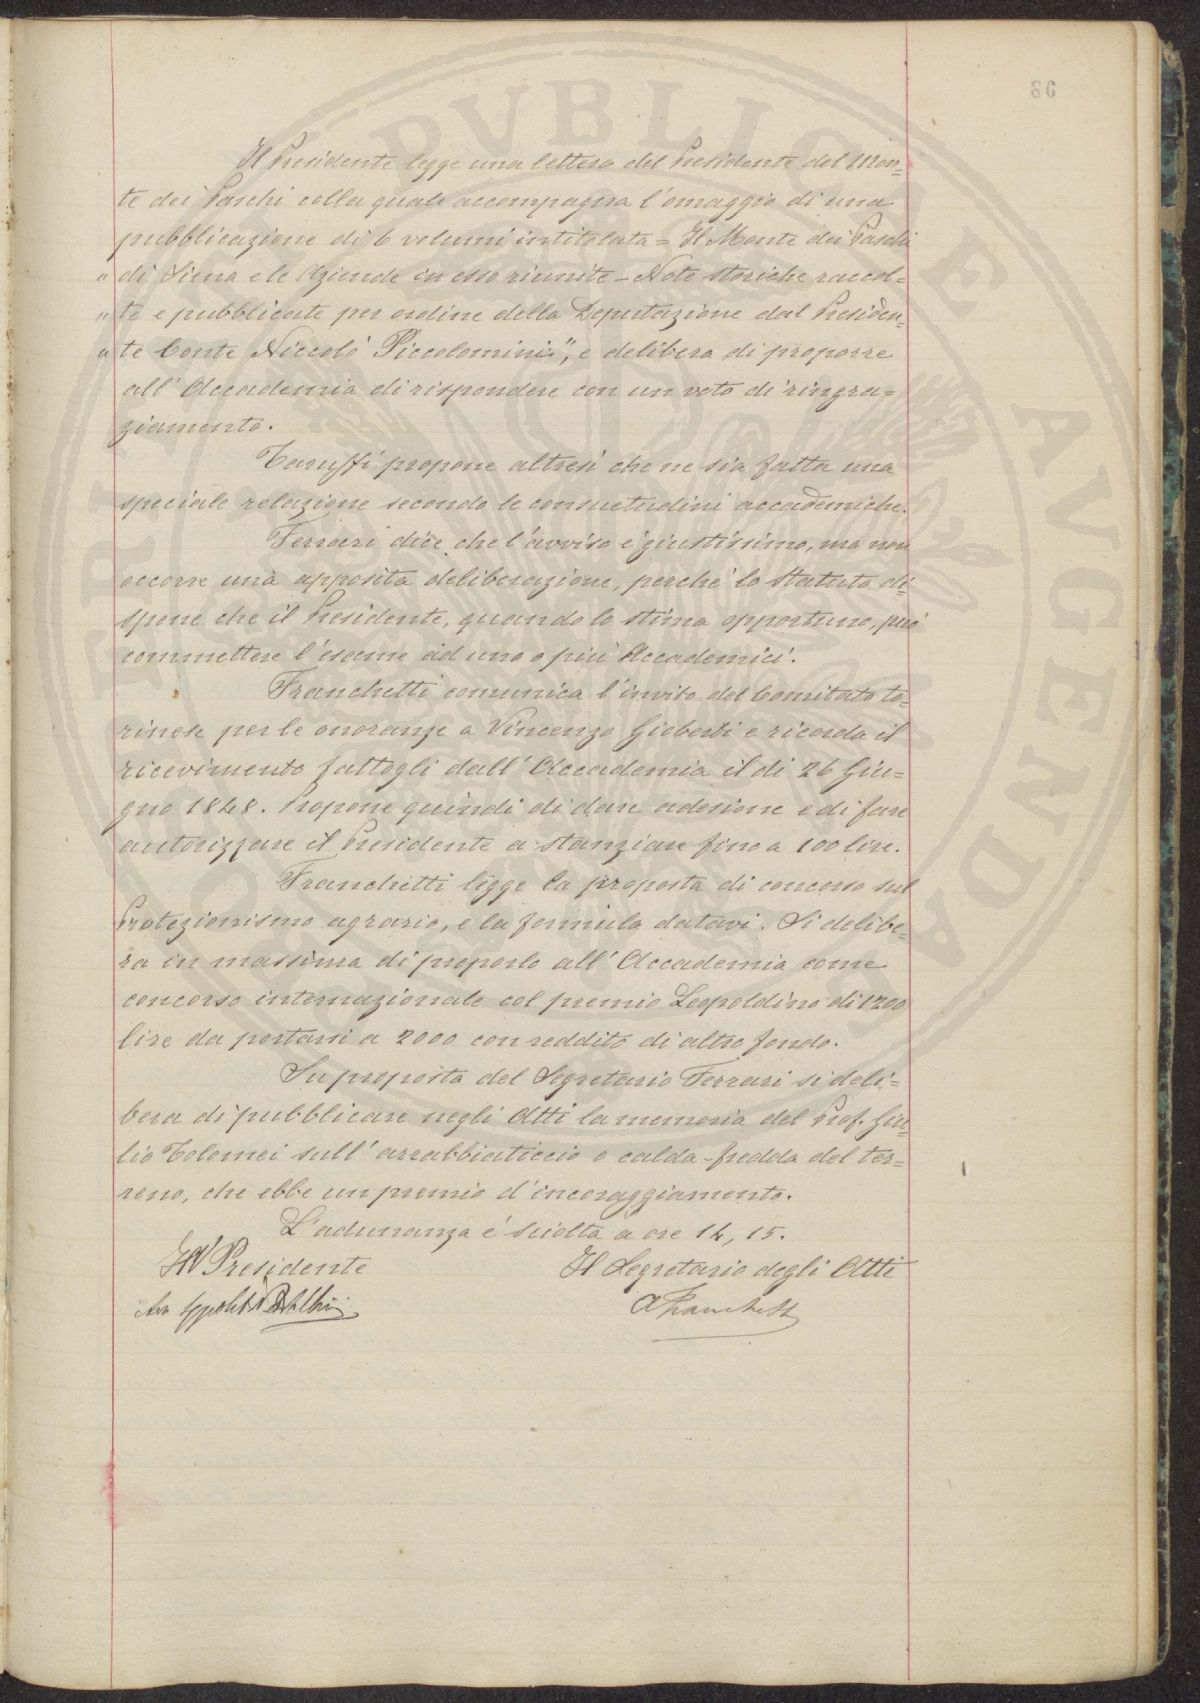 86
Il Presidente legge una lettera del Presidente del Mon=
te dei Paschi colla quale accompagna l'omaggio di una
pubblicazione di 6 volumi intitolata = Il Monte dei Paschi
" di Siena e le Aziende in esso riunite - Note storiche raccol=
" te e pubblicate per ordine della Deputazione dal Presiden=
" te Conte Niccolò Piccolomini", e delibera di proporre
all'Accademia di rispondere con un voto di ringra=
ziamento.
Taruffi propone altresì che ne sia fatta una
speciale relazione secondo le consuetudini accademiche.
Ferrari dice che l'avviso è giustissimo, ma non
occorre una apposita deliberazione, perché lo Statuto di=
spone che il Presidente, quando lo stima opportuno, può
commettere l'esame ad uno o più Accademici.
Franchetti comunica l'invito del Comitato to=
rinese per le onoranze a Vincenzo Gioberti e ricorda il
ricevimento fattogli dall'Accademia il dì 26 Giu=
gno 1848. Propone quindi di dare adesione e di fare
autorizzare il Presidente a stanziare fino a 100 lire.
Franchetti legge la proposta di concorso sul
Protezionismo agrario, e la formula datavi. Si delibe=
ra in massima di proporlo all'Accademia come
concorso internazionale col premio Leopoldino di 1200
lire da portarsi a 2000 con reddito di altro fondo.
Su proposta del Segretario Ferrari si deli=
bera di pubblicare negli Atti la memoria del Prof. Giu=
lio Tolomei sull'arrabbiaticcio o calda-fredda del ter=
reno, che ebbe un premio d'incoraggiamento.
L'adunanza è sciolta a ore 14, 15.
Il V Presidente
Il Segretario degli Atti
A Franchetti
PUBLICAE AUGENDA